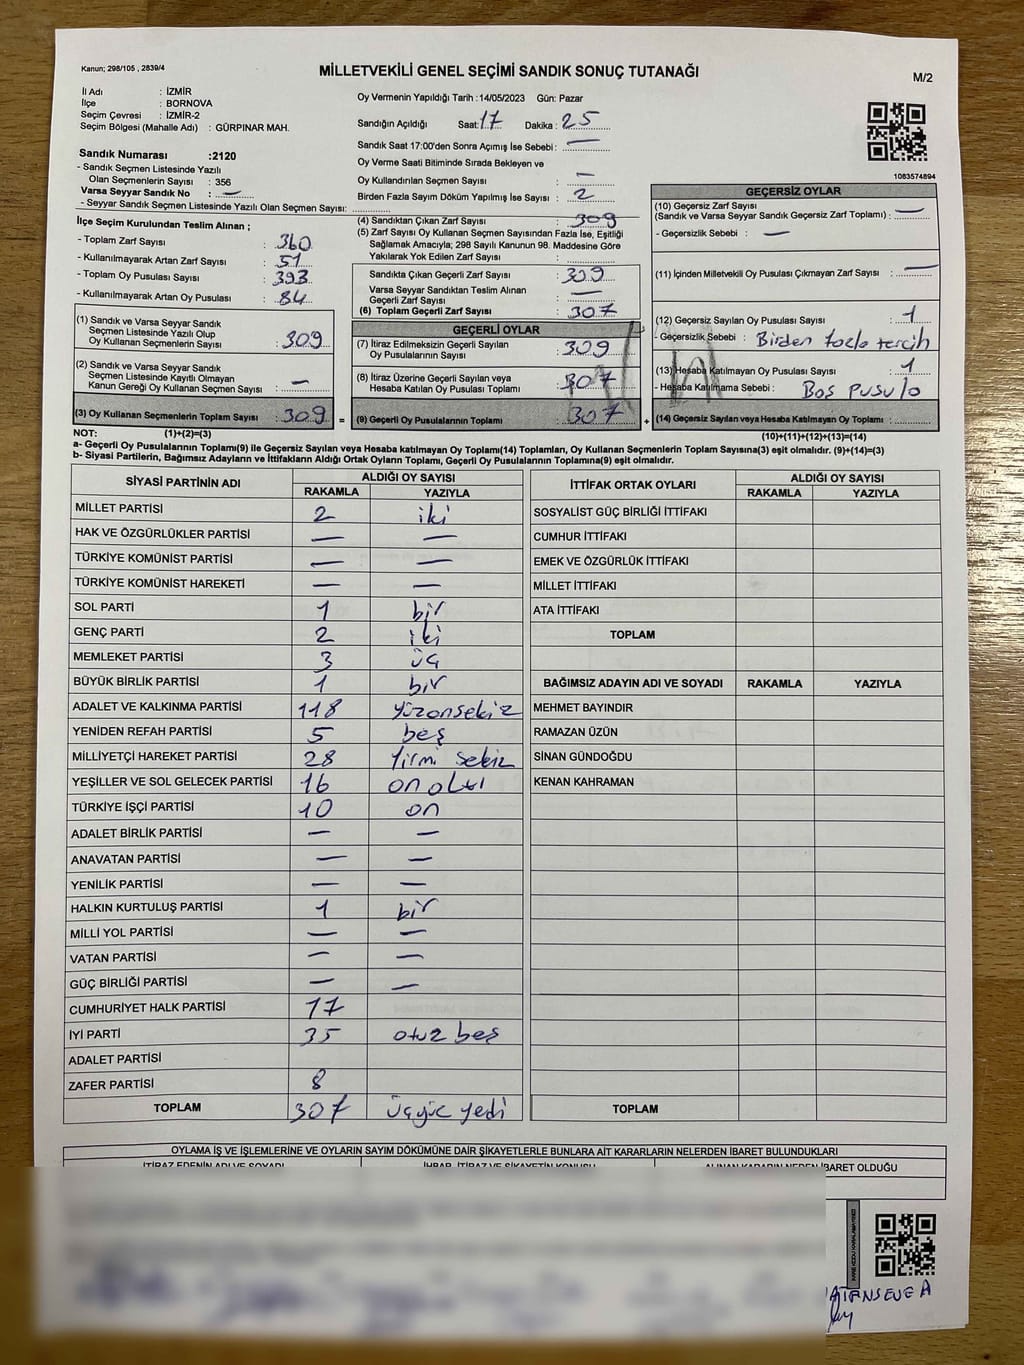 Kanun; 298/105 , 2839/4
MİLLETVEKİLİ GENEL SEÇİMİ SANDIK SONUÇ TUTANAĞI
M/2
İl Adı : İZMİR
İlçe : BORNOVA
Seçim Çevresi : İZMİR-2
Seçim Bölgesi (Mahalle Adı) : GÜRPINAR MAH.
Oy Vermenin Yapıldığı Tarih :14/05/2023 Gün: Pazar
Sandığın Açıldığı Saat: 17 Dakika : 25
Sandık Saat 17:00'den Sonra Açımış İse Sebebi : —
Oy Verme Saati Bitiminde Sırada Bekleyen ve
Oy Kullandırılan Seçmen Sayısı : —
Birden Fazla Sayım Döküm Yapılmış İse Sayısı : 2
Sandık Numarası :2120
- Sandık Seçmen Listesinde Yazılı
Olan Seçmenlerin Sayısı : 356
Varsa Seyyar Sandık No : —
- Seyyar Sandık Seçmen Listesinde Yazılı Olan Seçmen Sayısı:
İlçe Seçim Kurulundan Teslim Alınan ;
- Toplam Zarf Sayısı : 360
- Kullanılmayarak Artan Zarf Sayısı : 51
- Toplam Oy Pusulası Sayısı : 393
- Kullanılmayarak Artan Oy Pusulası : 84
(1) Sandık ve Varsa Seyyar Sandık
Seçmen Listesinde Yazılı Olup
Oy Kullanan Seçmenlerin Sayısı : 309
(2) Sandık ve Varsa Seyyar Sandık
Seçmen Listesinde Kayıtlı Olmayan
Kanun Gereği Oy Kullanan Seçmen Sayısı : —
(3) Oy Kullanan Seçmenlerin Toplam Sayısı : 309 =
(4) Sandıktan Çıkan Zarf Sayısı : 309
(5) Zarf Sayısı Oy Kullanan Seçmen Sayısından Fazla İse, Eşitliği
Sağlamak Amacıyla; 298 Sayılı Kanunun 98. Maddesine Göre
Yakılarak Yok Edilen Zarf Sayısı :
Sandıkta Çıkan Geçerli Zarf Sayısı : 309
Varsa Seyyar Sandıktan Teslim Alınan
Geçerli Zarf Sayısı : —
(6) Toplam Geçerli Zarf Sayısı : 307
GEÇERLİ OYLAR
(7) İtiraz Edilmeksizin Geçerli Sayılan
Oy Pusulalarının Sayısı : 309
(8) İtiraz Üzerine Geçerli Sayılan veya
Hesaba Katılan Oy Pusulası Toplamı : 307
(9) Geçerli Oy Pusulalarının Toplamı : 307 +
1083574894
GEÇERSİZ OYLAR
(10) Geçersiz Zarf Sayısı
(Sandık ve Varsa Seyyar Sandık Geçersiz Zarf Toplamı) : —
- Geçersizlik Sebebi : —
(11) İçinden Milletvekili Oy Pusulası Çıkmayan Zarf Sayısı : —
(12) Geçersiz Sayılan Oy Pusulası Sayısı : 1
- Geçersizlik Sebebi : Birden fazla tercih
(13) Hesaba Katılmayan Oy Pusulası Sayısı : 1
- Hesaba Katılmama Sebebi : Boş pusula
(14) Geçersiz Sayılan veya Hesaba Katılmayan Oy Toplamı :
NOT: (1)+(2)=(3) (10)+(11)+(12)+(13)=(14)
a- Geçerli Oy Pusulalarının Toplamı(9) ile Geçersiz Sayılan veya Hesaba katılmayan Oy Toplamı(14) Toplamları, Oy Kullanan Seçmenlerin Toplam Sayısına(3) eşit olmalıdır. (9)+(14)=(3)
b- Siyasi Partilerin, Bağımsız Adayların ve İttifakların Aldığı Ortak Oyların Toplamı, Geçerli Oy Pusulalarının Toplamına(9) eşit olmalıdır.
SİYASİ PARTİNİN ADI ALDIĞI OY SAYISI
RAKAMLA YAZIYLA
MİLLET PARTİSİ 2 iki
HAK VE ÖZGÜRLÜKLER PARTİSİ — —
TÜRKİYE KOMÜNİST PARTİSİ — —
TÜRKİYE KOMÜNİST HAREKETİ — —
SOL PARTİ 1 bir
GENÇ PARTİ 2 iki
MEMLEKET PARTİSİ 3 üç
BÜYÜK BİRLİK PARTİSİ 1 bir
ADALET VE KALKINMA PARTİSİ 118 yüzonsekiz
YENİDEN REFAH PARTİSİ 5 beş
MİLLİYETÇİ HAREKET PARTİSİ 28 yirmi sekiz
YEŞİLLER VE SOL GELECEK PARTİSİ 16 on altı
TÜRKİYE İŞÇİ PARTİSİ 10 on
ADALET BİRLİK PARTİSİ — —
ANAVATAN PARTİSİ — —
YENİLİK PARTİSİ — —
HALKIN KURTULUŞ PARTİSİ 1 bir
MİLLİ YOL PARTİSİ — —
VATAN PARTİSİ — —
GÜÇ BİRLİĞİ PARTİSİ — —
CUMHURİYET HALK PARTİSİ 77
İYİ PARTİ 35 otuz beş
ADALET PARTİSİ
ZAFER PARTİSİ 8
TOPLAM 307 üçyüz yedi
İTTİFAK ORTAK OYLARI ALDIĞI OY SAYISI
RAKAMLA YAZIYLA
SOSYALİST GÜÇ BİRLİĞİ İTTİFAKI
CUMHUR İTTİFAKI
EMEK VE ÖZGÜRLÜK İTTİFAKI
MİLLET İTTİFAKI
ATA İTTİFAKI
TOPLAM
BAĞIMSIZ ADAYIN ADI VE SOYADI RAKAMLA YAZIYLA
MEHMET BAYINDIR
RAMAZAN ÜZÜN
SİNAN GÜNDOĞDU
KENAN KAHRAMAN
TOPLAM
OYLAMA İŞ VE İŞLEMLERİNE VE OYLARIN SAYIM DÖKÜMÜNE DAİR ŞİKAYETLERLE BUNLARA AİT KARARLARIN NELERDEN İBARET BULUNDUKLARI
İTİRAZ EDENİN ADI VE SOYADI İHBAR, İTİRAZ VE ŞİKAYETİN KONUSU ALINAN KARARIN NEDEN İBARET OLDUĞU